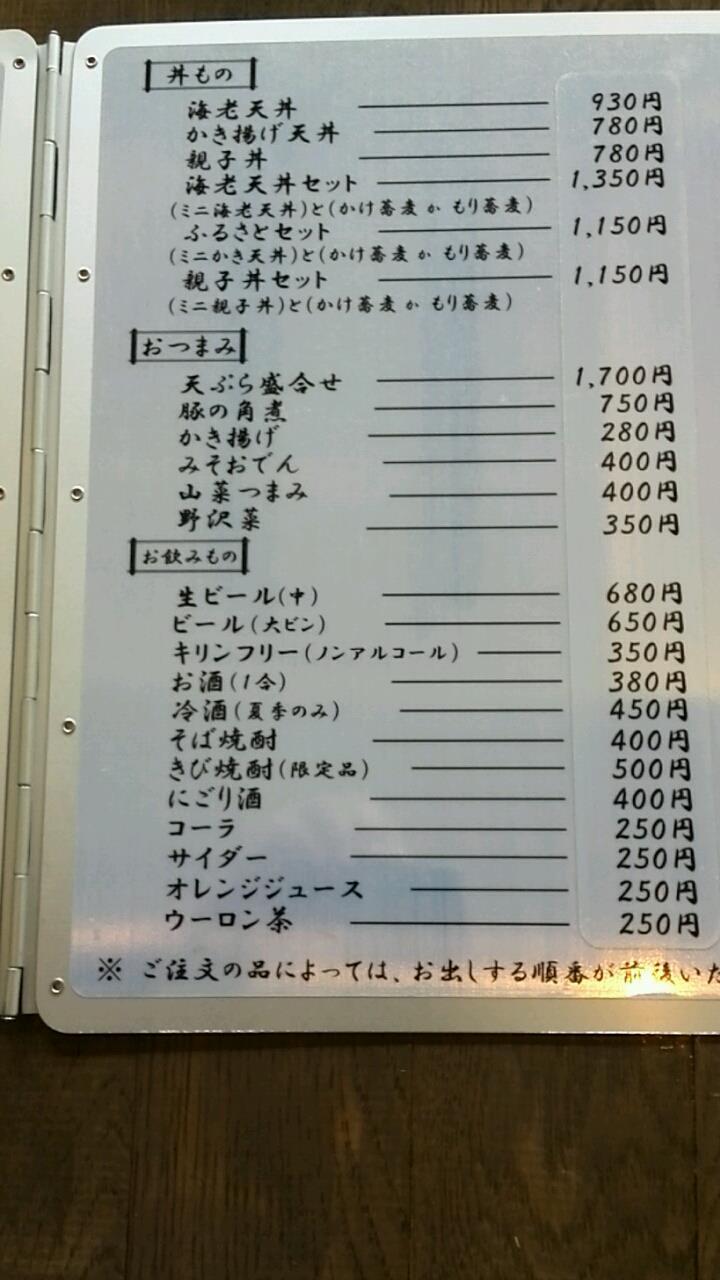 丼もの
海老天丼 930円
かき揚げ天丼 780円
親子丼 780円
海老天丼セット 1,350円
(ミニ海老天丼)と(かけ蕎麦 か もり蕎麦)
ふるさとセット 1,150円
(ミニかき天丼)と(かけ蕎麦 か もり蕎麦)
親子丼セット 1,150円
(ミニ親子丼)と(かけ蕎麦 か もり蕎麦)
おつまみ
天ぷら盛合せ 1,700円
豚の角煮 750円
かき揚げ 280円
みそおでん 400円
山菜つまみ 400円
野沢菜 350円
お飲みもの
生ビール(中) 680円
ビール(大ビン) 650円
キリンフリー(ノンアルコール) 350円
お酒(1合) 380円
冷酒(夏季のみ) 450円
そば焼酎 400円
きび焼酎(限定品) 500円
にごり酒 400円
コーラ 250円
サイダー 250円
オレンジジュース 250円
ウーロン茶 250円
※ ご注文の品によっては、お出しする順番が前後いた